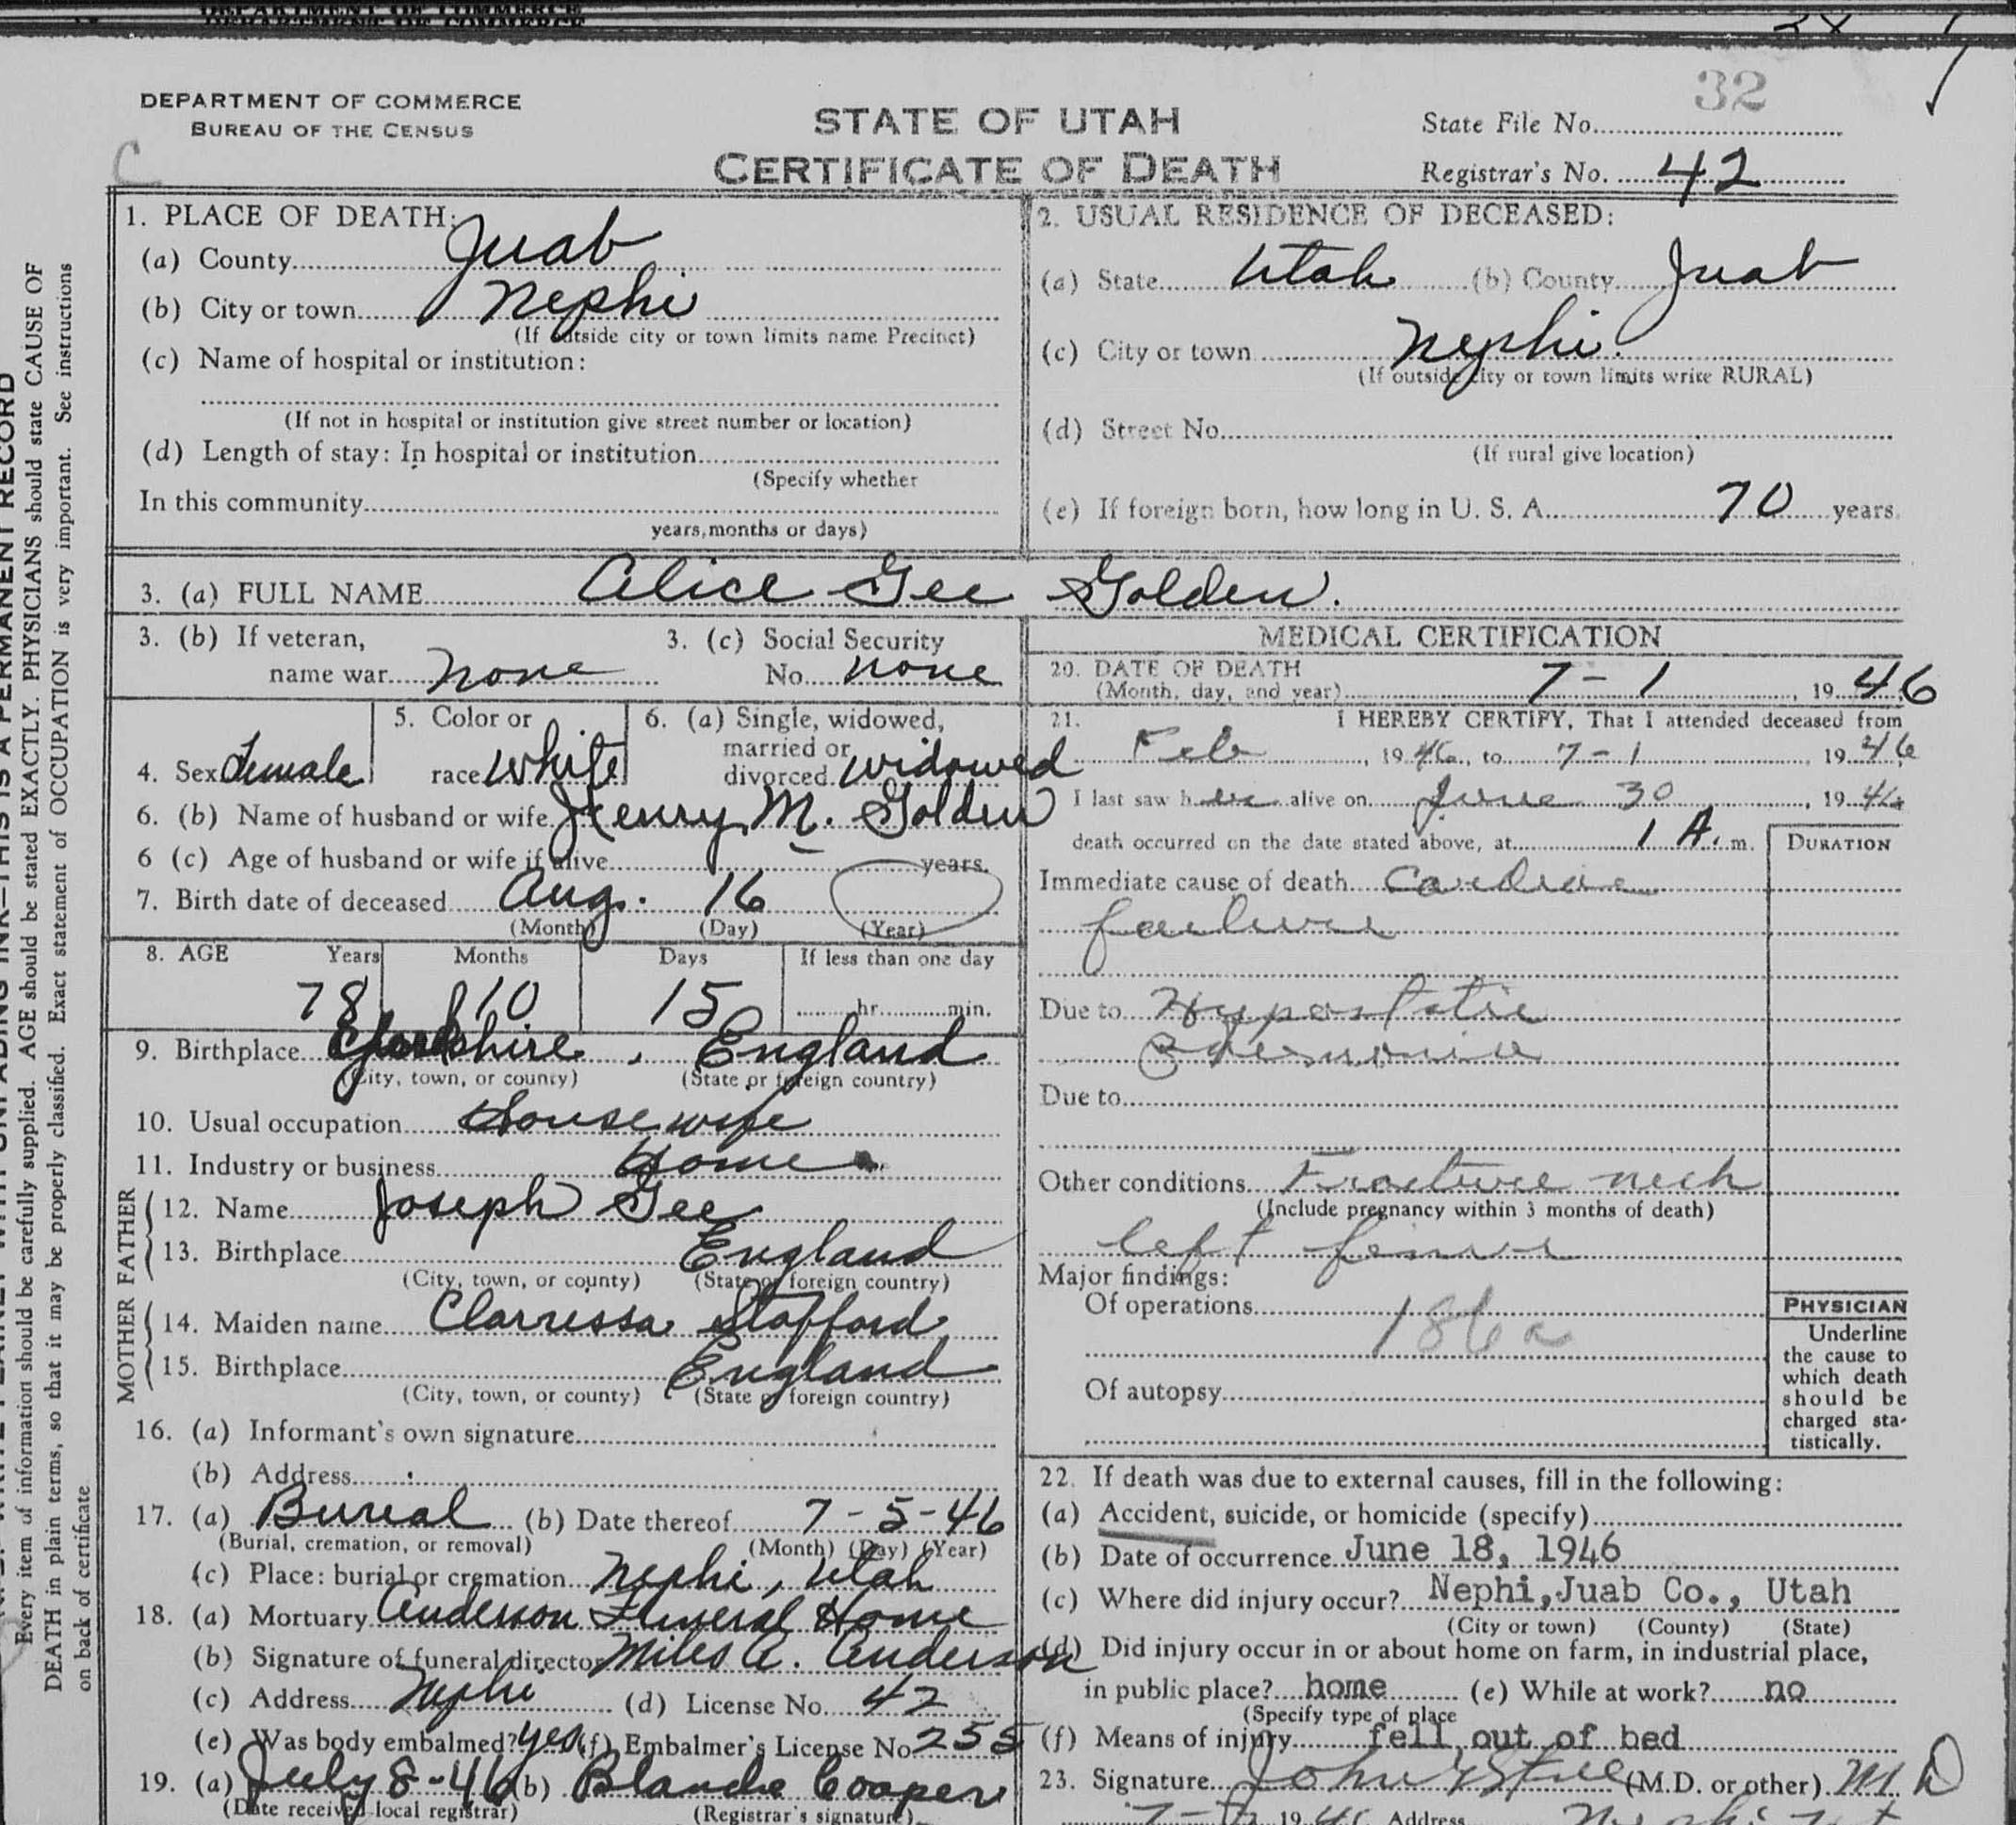 DEPARTMENT OF COMMERCE
DEPARTMENT OF COMMERCE
BUREAU OF THE CENSUS
C
STATE OF UTAH
CERTIFICATE OF DEATH
32
State File No.
Registrar's No. 42
Every item of information should be carefully supplied. AGE should be stated EXACTLY. PHYSICIANS should state CAUSE OF
DEATH in plain terms, so that it may be properly classified. Exact statement of OCCUPATION is very important. See instructions
on back of certificate
THIS IS A PERMANENT RECORD
1. PLACE OF DEATH:
(a) County Juab
(b) City or town Nephi
(If outside city or town limits name Precinct)
(c) Name of hospital or institution:
(If not in hospital or institution give street number or location)
(d) Length of stay: In hospital or institution
(Specify whether
In this community
years, months or days)
2. USUAL RESIDENCE OF DECEASED:
(a) State Utah (b) County Juab
(c) City or town Nephi.
(If outside city or town limits write RURAL)
(d) Street No.
(If rural give location)
(e) If foreign born, how long in U. S. A. 70 years.
3. (a) FULL NAME Alice Gee Golden.
3. (b) If veteran,
name war none
3. (c) Social Security
No. none
4. Sex Female
5. Color or
race White
6. (a) Single, widowed,
married or
divorced widowed
6. (b) Name of husband or wife Henry M. Golden
6 (c) Age of husband or wife if alive years.
7. Birth date of deceased Aug. 16
(Month) (Day) (Year)
8. AGE Years Months Days If less than one day
78 10 15 hr. min.
9. Birthplace Yorkshire, England
(City, town, or county) (State or foreign country)
10. Usual occupation Housewife
11. Industry or business Home
FATHER
12. Name Joseph Gee
13. Birthplace England
(City, town, or county) (State or foreign country)
MOTHER
14. Maiden name Clarressa Stafford
15. Birthplace England
(City, town, or county) (State or foreign country)
16. (a) Informant's own signature
(b) Address
17. (a) Bureal (b) Date thereof 7-5-46
(Burial, cremation, or removal) (Month) (Day) (Year)
(c) Place: burial or cremation Nephi, Utah
18. (a) Mortuary Anderson Funeral Home
(b) Signature of funeral director Miles A. Anderson
(c) Address Nephi (d) License No. 42
(e) Was body embalmed? yes (f) Embalmer's License No 255
19. (a) July 8-46 (b) Blanche Cooper
(Date received local registrar) (Registrar's signature)
MEDICAL CERTIFICATION
20. DATE OF DEATH
(Month, day, and year) 7-1, 1946
21. I HEREBY CERTIFY, That I attended deceased from
Feb, 1946, to 7-1, 1946
I last saw her alive on June 30, 1946
death occurred on the date stated above, at 1 A. m.
DURATION
Immediate cause of death Cardiac
failure
Due to Hypostatic
Pneumonia
Due to
Other conditions Fracture neck
(Include pregnancy within 3 months of death)
left femur
Major findings:
Of operations
186a
Of autopsy
PHYSICIAN
Underline
the cause to
which death
should be
charged sta-
tistically.
22. If death was due to external causes, fill in the following:
(a) Accident, suicide, or homicide (specify)
(b) Date of occurrence June 18, 1946
(c) Where did injury occur? Nephi, Juab Co., Utah
(City or town) (County) (State)
(d) Did injury occur in or about home on farm, in industrial place,
in public place? home (e) While at work? no
(Specify type of place
(f) Means of injury fell out of bed
23. Signature John (M.D. or other) MD
1946 Address